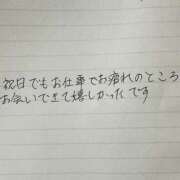 祝日でもお仕事でお疲れのところ
お会いできて嬉しかったです